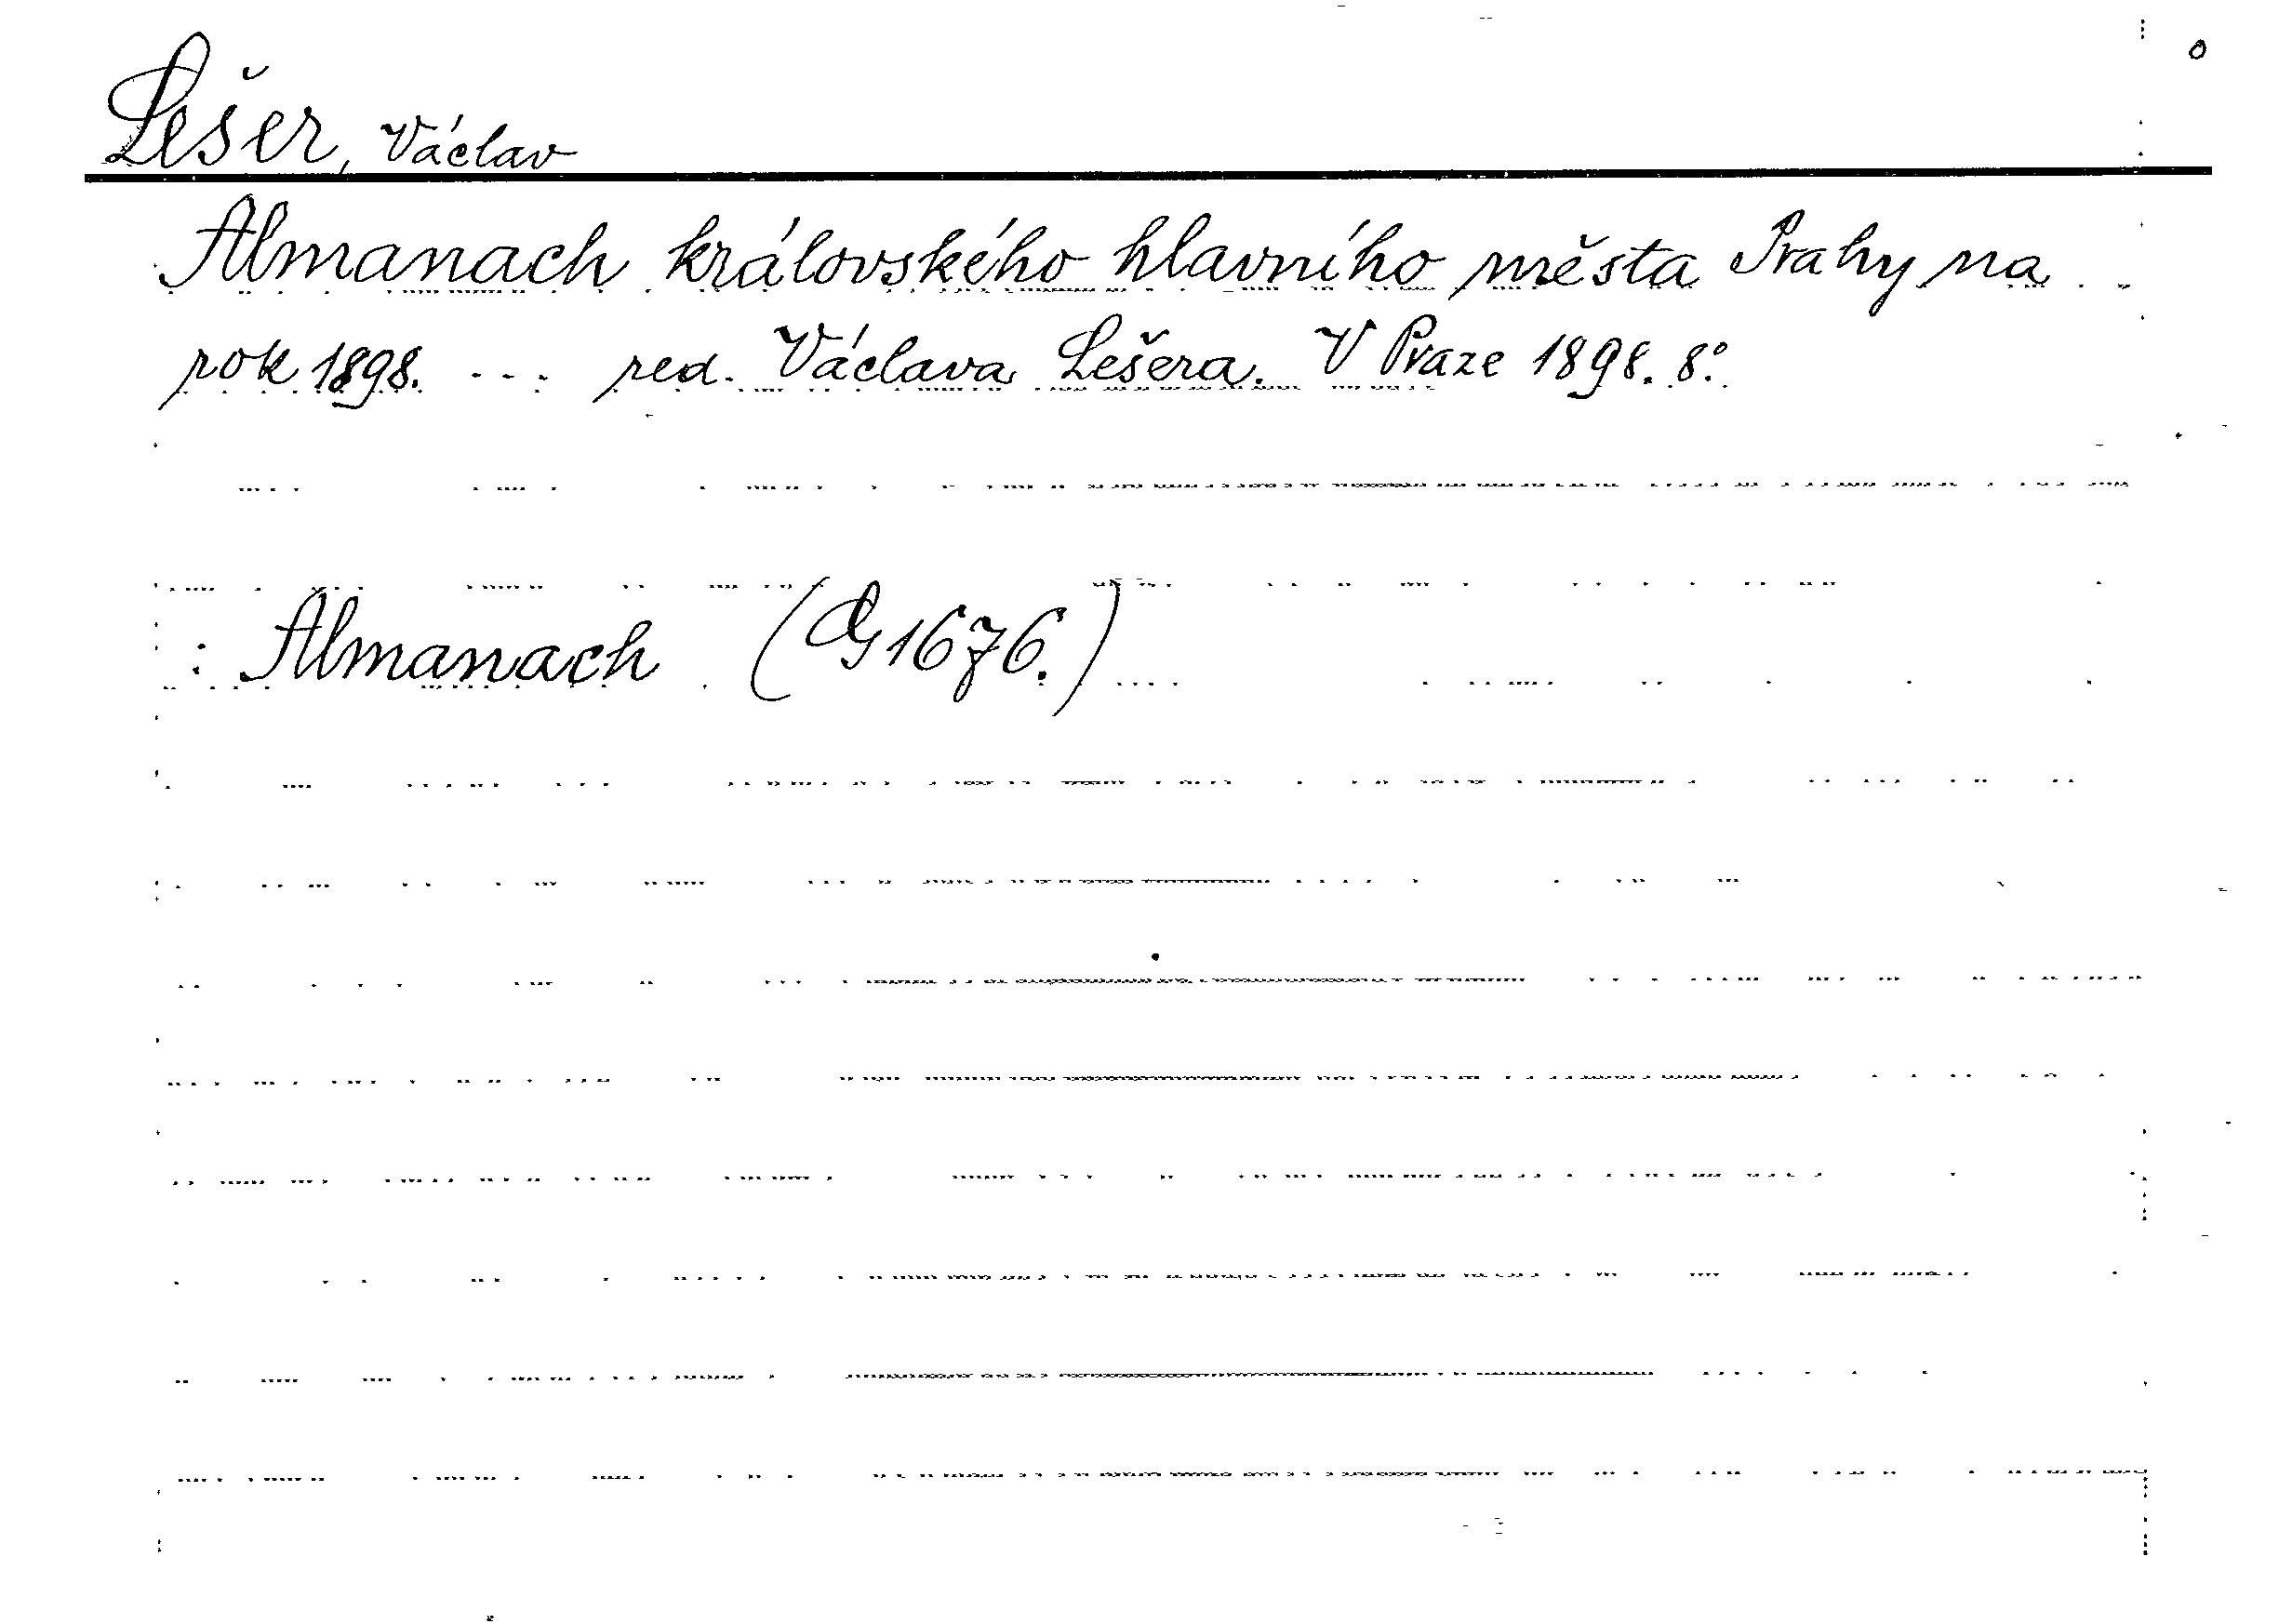 o
Lešer, Václav
Almanach královského hlavního města Prahy na
rok 1898. ... red. Václava Lešera. V Praze 1898. 8°.
: Almanach (G 1676.)